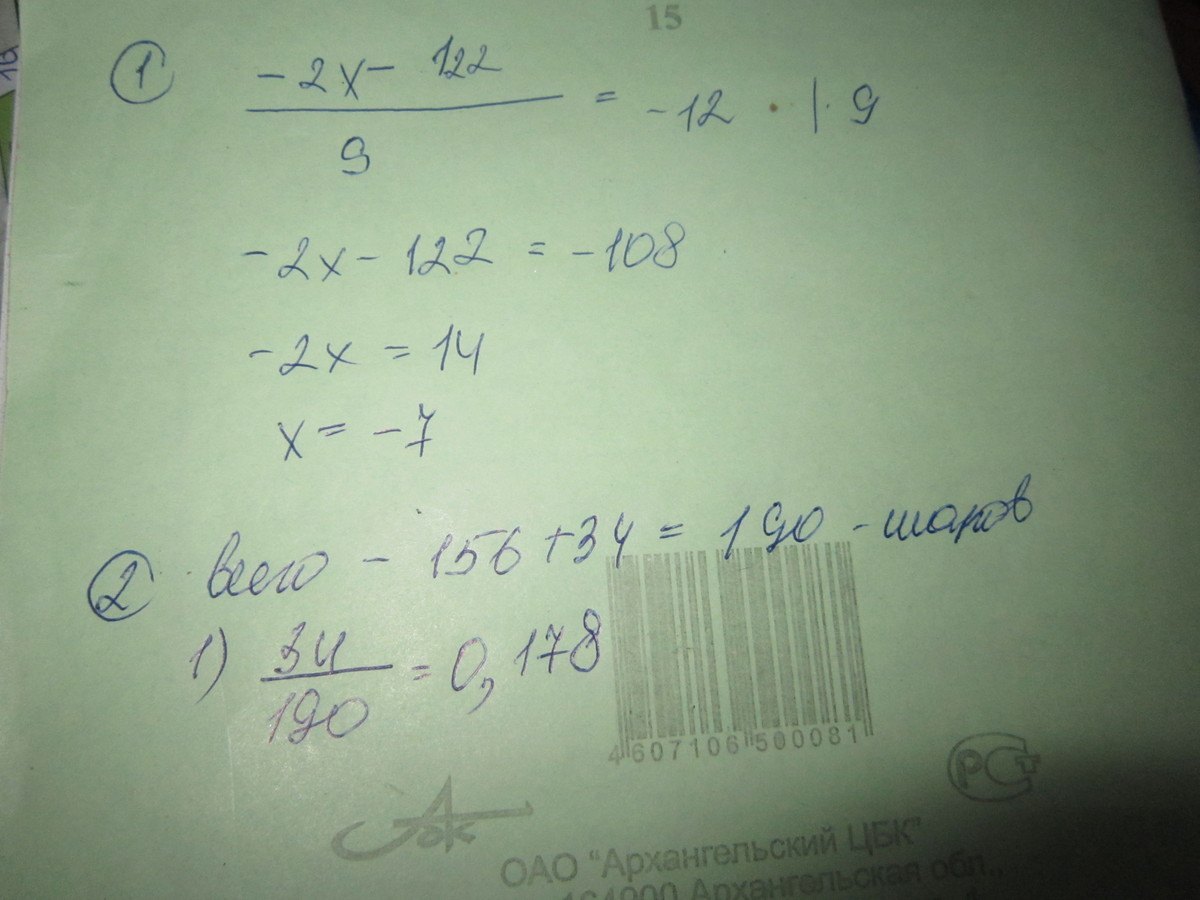 15
① -2x - 122 / 9 = -12 · | · 9
-2x - 122 = -108
-2x = 14
x = -7
② всего - 156 + 34 = 190 - шаров
1) 34 / 190 = 0,178
4607106500081
РСТ
ОАО "Архангельский ЦБК"
164900 Архангельская обл.,